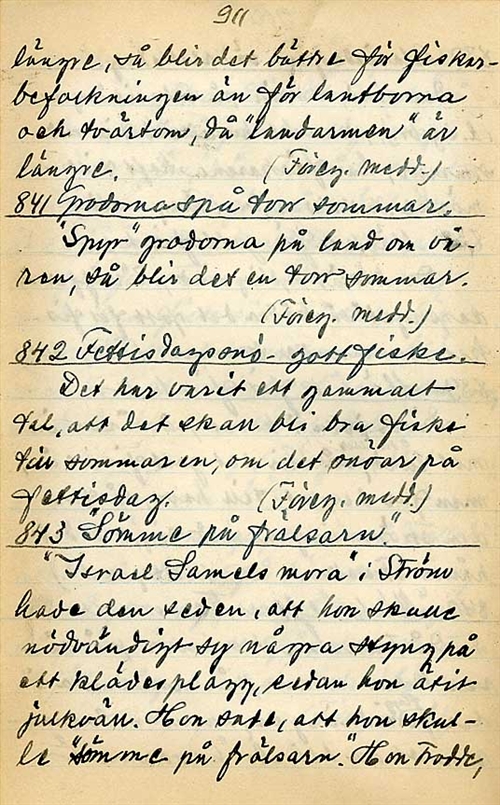 911
längre, så blir det bättre för fiskar-
befolkningen än för lantborna
och tvärtom, då "landarmen" är
längre. (Föreg. medd.)
841 Grodorna spå torr sommar.
"Spyr" grodorna på land om vå-
ren, så blir det en torr sommar.
(Föreg. medd.)
842 Fettisdagssnö - gott fiske.
Det har varit ett gammalt
tal, att det skall bli bra fiske
till sommaren, om det snöar på
fettisdag. (Föreg. medd.)
843 "Sömme på frälsarn."
"Israel Samels mora" i Ström
hade den seden, att hon skulle
nödvändigt sy några styng på
ett klädesplagg, sedan hon ätit
julkväll. Hon sade, att hon skul-
le "sömme på frälsarn." Hon trodde,